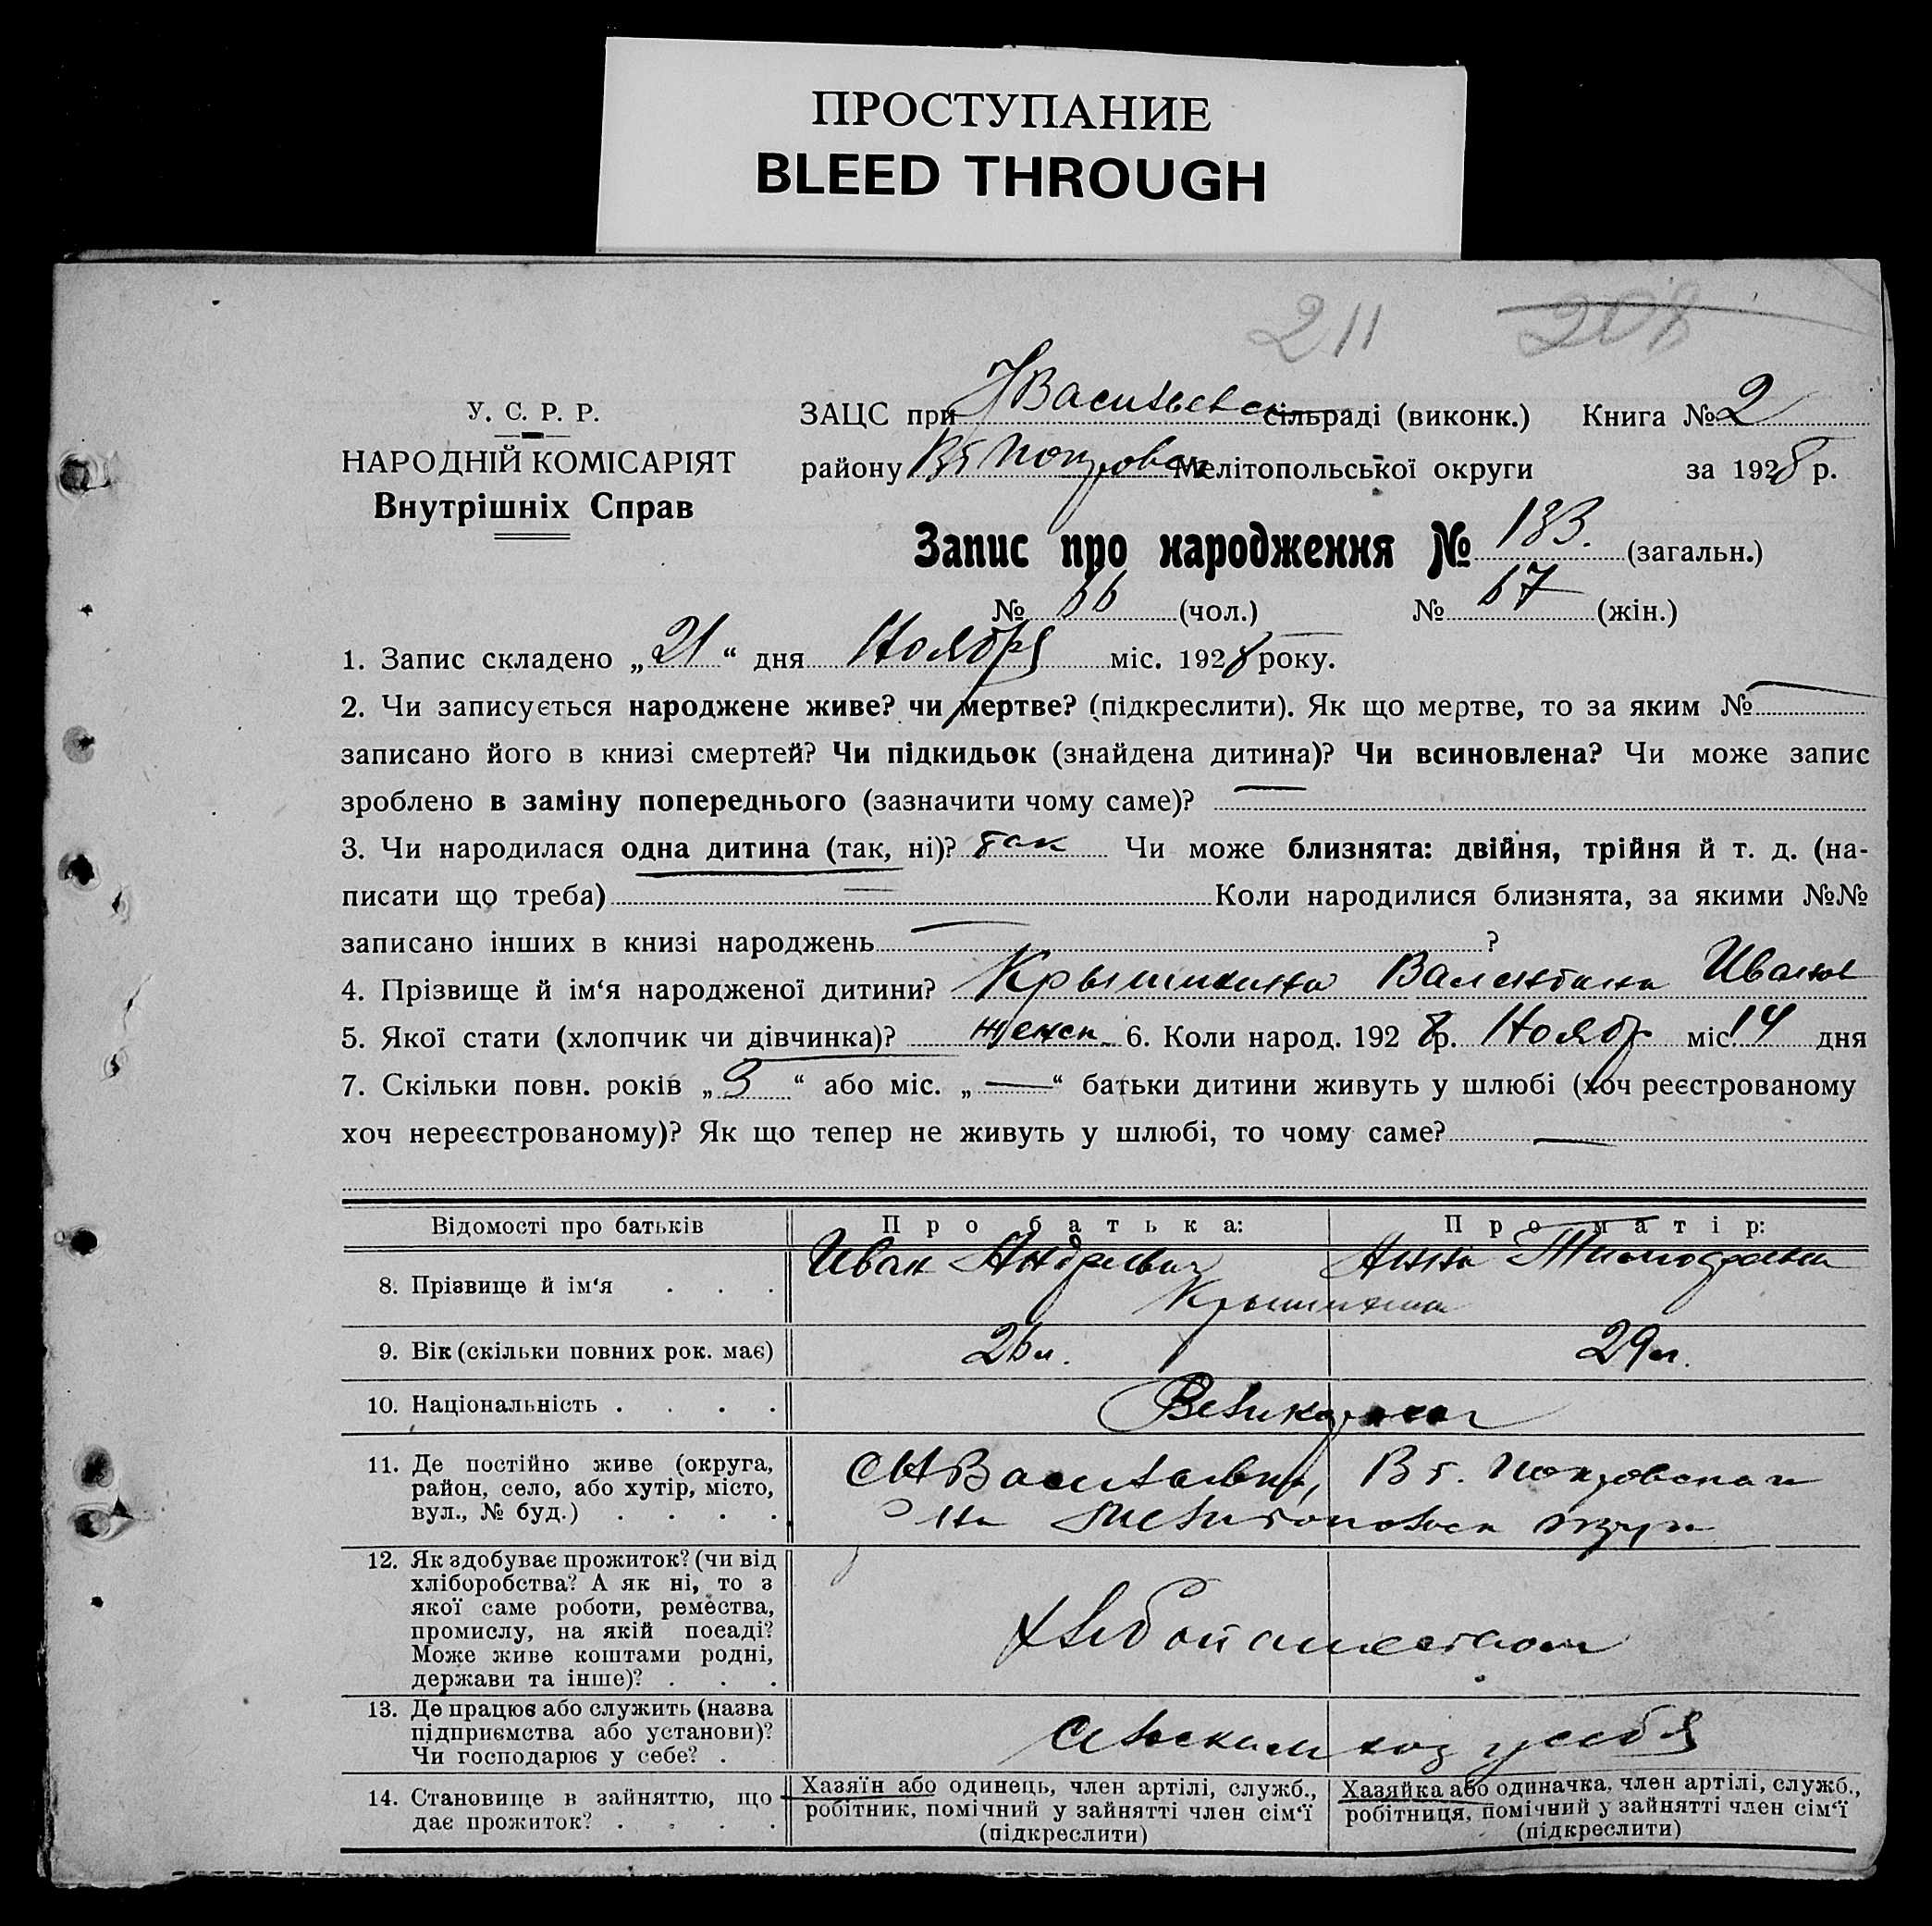 ПРОСТУПАНИЕ
BLEED THROUGH
211 208
У. С. Р. Р.
НАРОДНІЙ КОМІСАРІЯТ
Внутрішніх Справ
ЗАЦС при НВасильевс сільраді (виконк.) Книга № 2
району Мелітопольської округи за 1928 р.
Запис про народження № 133. (загальн.)
№ 66 (чол.) № 67 (жін.)
1. Запис складено „21“ дня Ноября міс. 1928 року.
2. Чи записується народжене живе? чи мертве? (підкреслити). Як що мертве, то за яким №
записано його в книзі смертей? Чи підкидьок (знайдена дитина)? Чи всиновлена? Чи може запис
зроблено в заміну попереднього (зазначити чому саме)? —
3. Чи народилася одна дитина (так, ні)? так Чи може близнята: двійня, трійня й т. д. (на-
писати що треба) — Коли народилися близнята, за якими №№
записано інших в книзі народжень — ?
4. Прізвище й ім‘я народженої дитини? Крышихина Валентина Иванов
5. Якої стати (хлопчик чи дівчинка)? женск. 6. Коли народ. 1928 р. Ноябр міс. 14 дня
7. Скільки повн. років „3“ або міс. „—“ батьки дитини живуть у шлюбі (хоч реєстрованому
хоч нереєстрованому)? Як що тепер не живуть у шлюбі, то чому саме? —
Відомості про батьків Про батька: Про матір:
8. Прізвище й ім‘я . . . Иван Андреевич Анна Тимофеевна
Крышихина
9. Вік (скільки повних рок. має) 26 л. 29 л.
10. Національність . . . .
11. Де постійно живе (округа,
район, село, або хутір, місто,
вул., № буд.) . . . .
СНВасильевка, Вт. Покровского р-
на Мелитопольск округи
12. Як здобуває прожиток? (чи від
хліборобства? А як ні, то з
якої саме роботи, ремества,
промислу, на якій посаді?
Може живе коштами родні,
держави та інше)? . . .
Хлебопашеством
13. Де працює або служить (назва
підприємства або установи)?
Чи господарює у себе? .
Сельским хоз у себя
14. Становище в зайняттю, що
дає прожиток? . . . .
Хазяїн або одинець, член артілі, служб.,
робітник, помічний у зайнятті член сім‘ї
(підкреслити)
Хазяйка або одиначка, член артілі, служб.,
робітниця, помічний у зайнятті член сім‘ї
(підкреслити)